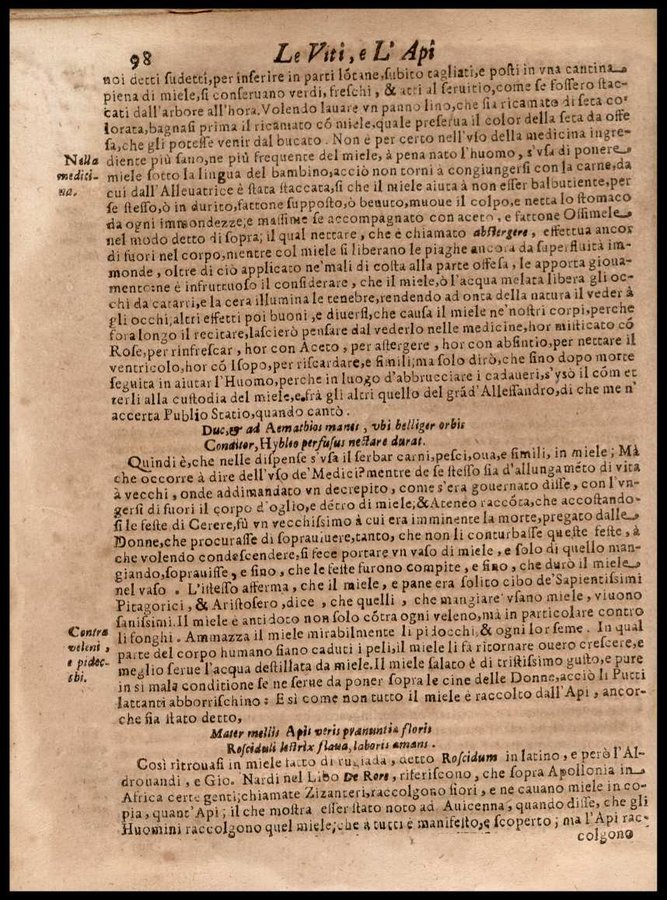 98
Le Viti, e L' Api
noi detti sudetti, per inserire in parti lõtane, subito tagliati, e posti in vna cantina
piena di miele, si conseruano verdi, freschi, & atti al seruitio, come se fossero stac-
cati dall'arbore all'hora. Volendo lauare vn panno lino, che sia ricamato di seta co-
lorata, bagnasi prima il ricamato cõ miele, quale preserua il color della seta da offe
sa, che gli potesse venir dal bucato. Non è per certo nell'vso della medicina ingre-
Nella
medici-
na.
diente più sano, ne più frequente del miele, à pena nato l'huomo, s'vsa di ponere
miele sotto la lingua del bambino, acciò non torni à congiungersi con la carne, da
cui dall'Alleuatrice è stata staccata, si che il miele aiuta à non esser balbutiente, per
se stesso, ò in durito, fattone supposto, ò benuto, muoue il colpo, e netta lo stomaco
da ogni immondezze, e massime se accompagnato con aceto, e fattone Ossimele
nel modo detto di sopra; il qual nettare, che è chiamato abstergere, effettua ancor
di fuori nel corpo, mentre col miele si liberano le piaghe ancora da superfluità im-
monde, oltre di ciò applicato ne' mali di costa alla parte offesa, le apporta gioua-
mento ne è infruttuoso il considerare, che il miele, ò l'acqua melata libera gli oc-
chi da catarri, e la cera illumina le tenebre, rendendo ad onta della natura il veder à
gli occhi; altri effetti poi buoni, e diuersi, che causa il miele ne' nostri corpi, perche
fora longo il recitare, lascierò pensare dal vederlo nelle medicine, hor misticato cõ
Rose, per rinfrescar, hor con Aceto, per astergere, hor con absintio, per nettare il
ventricolo, hor cõ Isopo, per riscardare, e simili; ma solo dirò, che sino dopo morte
seguita in aiutar l'Huomo, perche in luogo d'abbrucciare i cadaueri, s'vsò il cõm et
terli alla custodia del miele, e frà gli altri quello del grãd' Allessandro, di che me n'
accerta Publio Statio, quando cantò.
Duc, & ad Aemathios manes, vbi belliger orbis
Conditor, Hybleo perfusus nectare durat.
Quindi è, che nelle dispense s'vsa il serbar carni, pesci, oua, e simili, in miele; Mà
che occorre à dire dell'vso de' Medici? mentre de se stesso sia d'allungamẽto di vita
à vecchi, onde addimandato vn decrepito, come s'era gouernato disse, con l'vn-
gersi di fuori il corpo d'oglio, e dẽtro di miele, & Ateneo raccõta, che accostando-
si le feste di Cerere, fù vn vecchissimo à cui era imminente la morte, pregato dalle
Donne, che procurasse di soprauiuere, tanto, che non li conturbasse queste feste, à
che volendo condescendere, si fece portare vn vaso di miele, e solo di quello man-
giando, soprauisse, e sino, che le feste furono compite, e sino, che durò il miele
nel vaso. L'istesso afferma, che il miele, e pane era solito cibo de' Sapientissimi
Pitagorici, & Aristosero, dice, che quelli, che mangiare vsano miele, viuono
sanissimi. Il miele è antidoto non solo cõtra ogni veleno, ma in particolare contro
Contra
veleni,
e pidoc-
chi.
li fonghi. Ammazza il miele mirabilmente li pidocchi, & ogni lor seme. In qual
parte del corpo humano siano caduti i peli, il miele li fa ritornare ouero crescere, e
meglio serue l'acqua destillata da miele. Il miele salato è di tristissimo gusto, e pure
in sì mala conditione se ne serue da poner sopra le cine delle Donne, acciò li Putti
lattanti abborrischino: E sì come non tutto il miele è raccolto dall'Api, ancor-
che sia stato detto,
Mater mellis Apis veris prænuntia floris
Rosciduli lectrix flaua, laboris amans.
Così ritrouasi in miele fatto di rugiada, detto Roscidum in latino, e però l'Al-
drouandi, e Gio. Nardi nel Libo De Rore, riferiscono, che sopra Apollonia in
Africa certe genti; chiamate Zizanteri, raccolgono fiori, e ne cauano miele in co-
pia, quant'Api; il che mostra esser stato noto ad Auicenna, quando disse, che gli
Huomini raccolgono quel miele; che à tutti è manifesto, e scoperto; ma l'Api rac-
colgono